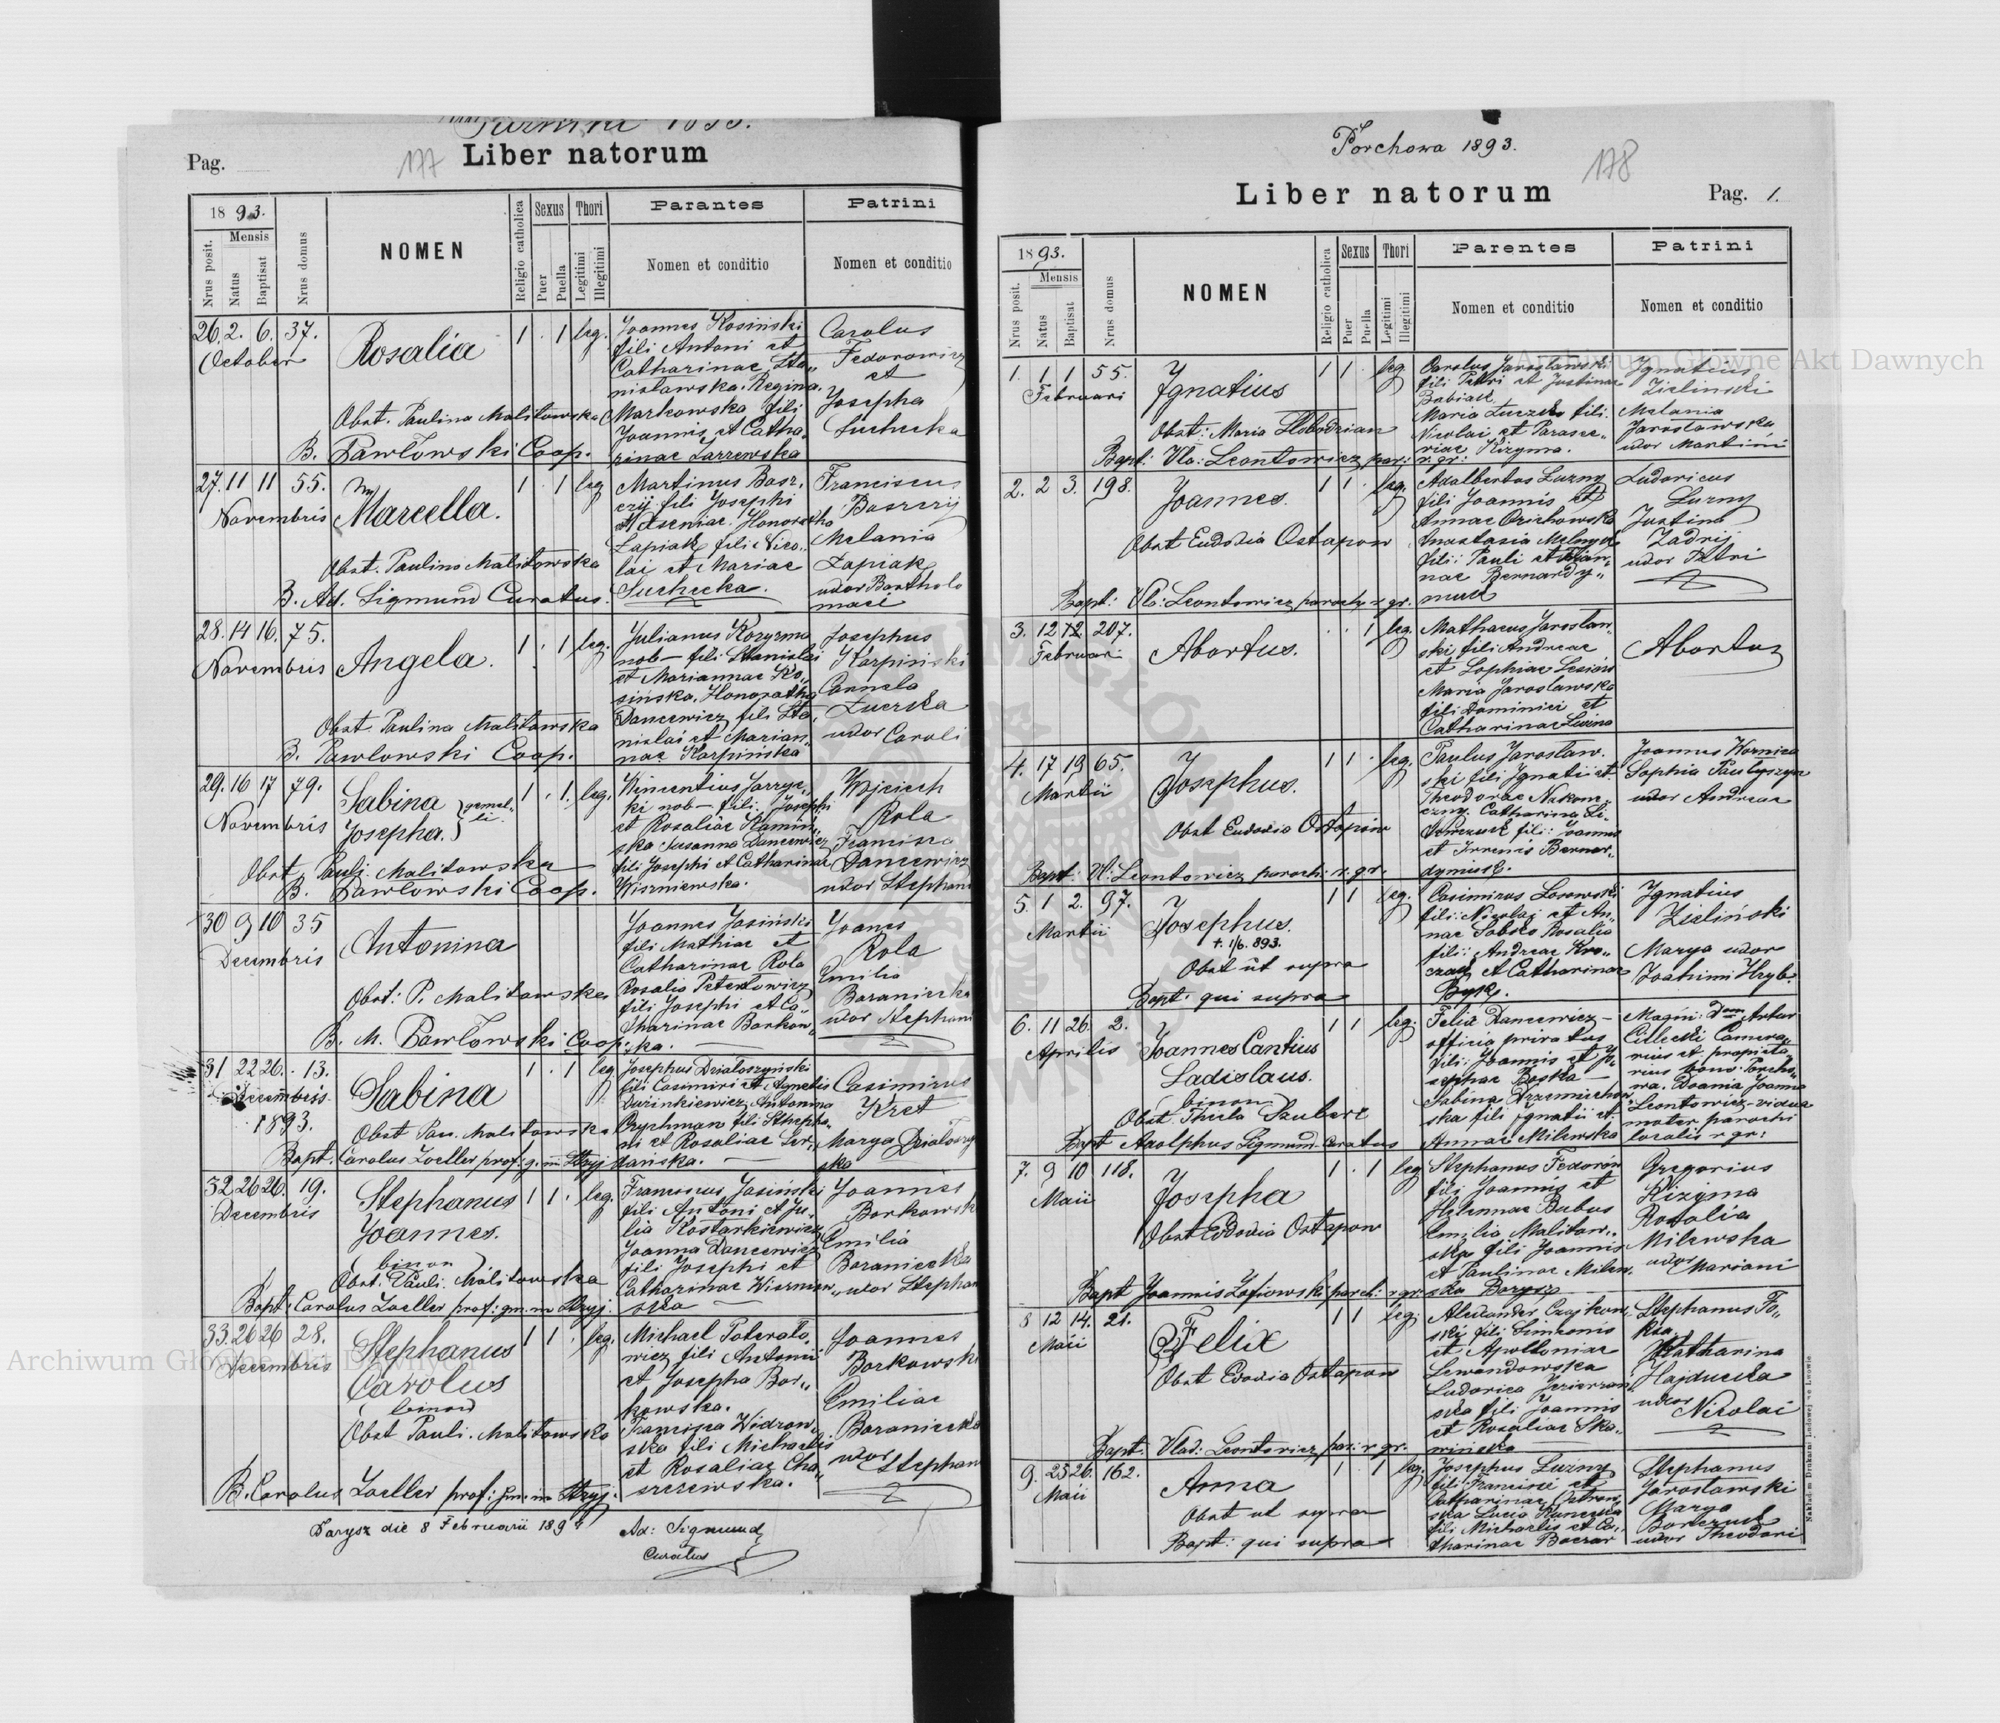 1893.
Pag.
177
Liber natorum
1893.
Mensis
Nrus posit.
Natus
Baptisat
Nrus domus
NOMEN
Religio catholica
Sexus
Puer
Puella
Thori
Legitimi
Illegitimi
Parentes
Nomen et conditio
Patrini
Nomen et conditio
26. 2. 6. 37.
October
Rosalia
1 . 1 leg.
Joannes Kosiński
fili Antoni et
Catharinae Sta„
nisławska. Regina
Markowska fili
Joannis et Catha„
rinae Zarzewska
Carolus
Fedorowicz
et
Josepha
Suchecka
Obst. Paulina Malitowska
B. Pawłowski Coop.
27. 11 11 55.
Novembris
Marcella.
1 . 1 leg
Martinus
fili Josephi
Honoratha
Łapiak fili Nico„
lai et Mariae
Suchecka.
Franciscus
Melania
Łapiak
uxor Bartholo
maei
Obst. Paulina Malitowska
B. Ad. Sigmund Curatus.
28. 14 16. 75.
Novembris
Angela.
1 . 1 leg.
Julianus Kozyrma
nob— fili Stanislai
et Mariannae Ko„
sińska. Honoratha
Dancewicz fili Sta„
nislai et Marian„
nae Karpińska
Josephus
Karpiński
uxor Caroli
Obst. Paulina Malitowska
B. Pawlowski Coop.
29. 16 17 79.
Novembris
Sabina
Josepha.
gemel„
li
1 . 1. leg.
Wincentius
ki nob— fili Josephi
et Rosaliae Kamiń„
ska Susanna Dancewicz
fili Josephi et Catharinae
Wiszniewska.
Wojciech
Rola
Francisca
Dancewicz
uxor Stephani
Obst. Pauli. Malitowska
B. Pawłowski Coop.
30 9 10 35
Decembris
Antonina
Joannes Jasiński
fili Mathiae et
Catharinae Rola
Rosalia
fili Josephi et Ca„
tharinae Borkow„
ska.
Joanes
Rola
Emilia
Boraniecka
uxor Stephani
Obst: P. Malitowska
B. M. Pawłowski Coop.
31 22 26. 13.
Decembris
1893.
Sabina
1 . 1 leg
Josephus Działoszyński
fili Casimiri et Agnetis
Antonina
fili Stepha„
ni et Rosaliae
Casimirus
Kret
Marya Działoszyń
ska
Obst Pau. Malitowska
Bapt. Carolus Zoeller prof. g. in Stryj
32 26 26. 19.
Decembris
Stephanus
Joannes.
binom
1 1 . leg.
Franciscus Jasiński
fili Antoni et Ju„
lia Kostarkiewicz
Joanna Dancewicz
fili Josephi et
Catharinae Wisznew„
ska
Joannes
Borkowski
Emilia
Boraniecka
uxor Stephani
Obst. Pauli. Malitowska
Bapt. Carolus Zoeller prof: gm. in Stryj.
33. 26 26 28.
Decembris
Stephanus
Carolus
binom
1 1 . leg.
Michael
wicz fili Antonii
et Josepha Bor„
kowska.
Francisca Widzow„
ska fili Michaelis
et Rosaliae Cha„
szczewska.
Joannes
Borkowski
Emiliae
Boraniecka
uxor Stephani
Obst Pauli. Malitowska
B. Carolus Zoeller prof: gm: in Stryj.
Barysz die 8 Februarii 1894
Ad: Sigmund
Curatus
Porchowa 1893.
178
Liber natorum
Pag. 1.
1893.
Mensis
Nrus posit.
Natus
Baptisat
Nrus domus
NOMEN
Religio catholica
Sexus
Puer
Puella
Thori
Legitimi
Illegitimi
Parentes
Nomen et conditio
Patrini
Nomen et conditio
1. 1 1 55.
Februari
Ignatius
1 1 . leg.
Carolus Jarosławski
fili Petri et Justinae
Babiak
Maria fili.
Nicolai et Parasce„
viae Kizyma.
Ignatius
Zielinski
Melania
Jarosławska
uxor Martini
Obst: Maria Slobodzian
Bapt: Vla: Leontowicz par: r. gr:
2. 2 3. 198.
Joannes.
1 1 . leg.
Adalbertus Luzny
fili Joannis et
Annae Orichowska
Anastasia Melnyk
fili: Pauli et
nae Bernardy„
muck
Ludovicus
Luzny
Justina
Zadrij
uxor Petri
Obst Eudoxia Ostapow
Bapt: Vla: Leontowicz paroch. r. gr.
3. 12 12. 207.
Februari
Abortus.
. . 1 leg.
Mathaeus Jaroslaw„
ski fili Andreae
et Sophiae
Maria Jaroslawska
fili Dominici et
Catharinae
Abortus
4. 17 19 65.
Martii
Josephus.
1 1 . leg.
Paulus Jaroslaw.
ski fili Ignatii et
Theodorae Nakone„
czny. Catharina
fili: Joannes
et Bernar„
dymuck.
Joannes
Sophia
uxor Andreae
Obst Eudoxia Ostapow
Bapt: Vl: Leontowicz paroch: r. gr.
5. 1 2. 97.
Martii
Josephus.
+. 1/6. 893.
1 1 leg.
Casimirus
fili: Nicolai et An„
nae Rosalia
fili: Andreae
et Catharinae
Byk.
Ignatius
Zieliński
Marya uxor
Joachimi Hryb.
Obst ut supra
Bapt: qui supra
6. 11 26. 2.
Aprilis
Joannes Cantius
Ladislaus.
binom
1 1 leg.
Felix Dancewicz—
officia privatus
fili: Joannis et Jo„
sephae
Sabina
ska fili Ignatii et
Annae Milewska
Magni: Dom Artur
Cielecki Camera„
rius et propieta„
rius bono. Porcho„
wa. Joanna
Leontowicz vidua
mater parochi
localis r gr:
Obst. Thecla
Bapt Adolphus Sigmund—Curatus
7. 9 10 118.
Maii
Josepha
1 . 1 leg
Stephanus Fedorów
fili Joannis et
Helennae Bubus
Emilia Malitow„
ska fili Joannis
et Paulinae Milew„
ska
Gregorius
Kizyma
Rosalia
Milewska
uxor Mariani
Obst Eudoxia Ostapow
Bapt Joannis paroch: r gr.
8 12 14. 21.
Maii
Felix
1 1 leg.
Alexander Czajkow„
ski fili Simeonis
et Apolloniae
Lewandowska
Ludovica
ska fili Joannis
et Rosaliae Ska„
wińska
Stephanus
Katharina
Hajducka
uxor
Nicolai
Obst Edoxia Ostapow
Bapt. Vlad: Leontowicz par: r gr.
9. 25 26. 162.
Maii
Anna
1 . 1 leg.
Josephus Luzny
fili: Francisci et
Catharinae
ska Lucia
fili Michaelis et Ca„
tharinae
Stephanus
Jaroslawski
Marya
uxor Theodori
Obst ut supra
Bapt: qui supra
Nakładem Drukarni Ludowej we Lwowie
Archiwum Główne Akt Dawnych
Archiwum Główne Akt Dawnych